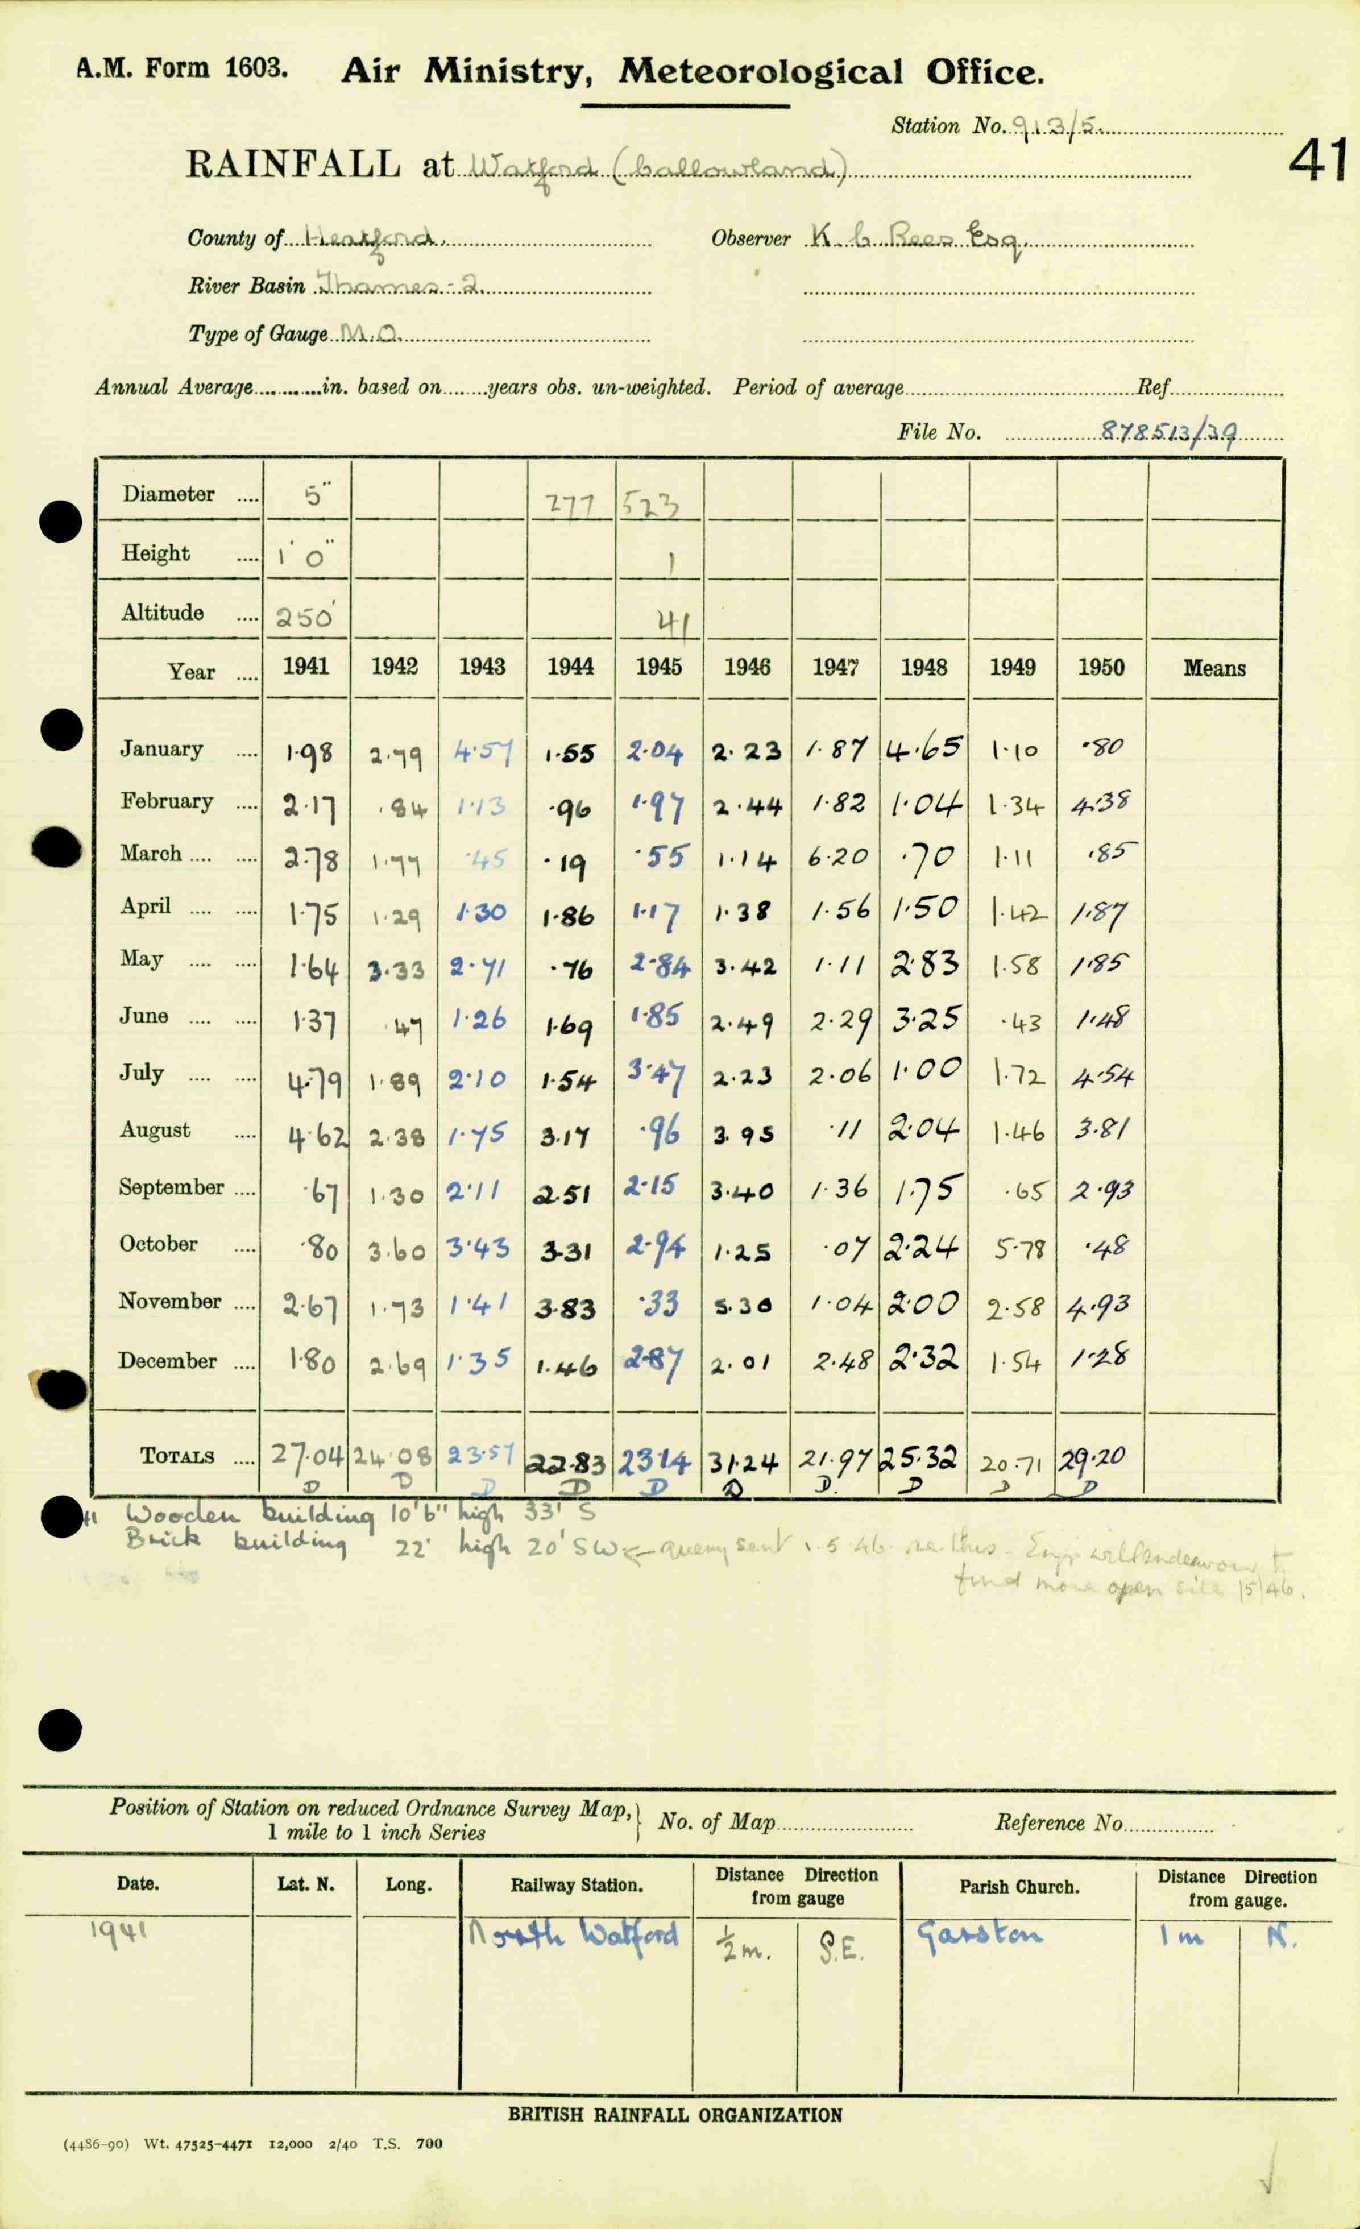 A.M. Form 1603. Air Ministry, Meteorological Office.
Station No. 913/5.
41
RAINFALL at Watford (Callowland)
County of Hertford. Observer K. C. Rees Esq.
River Basin Thames - 2.
Type of Gauge M.O.
Annual Average............in. based on........years obs. un-weighted. Period of average........Ref........
File No. 878513/39
Diameter .... 5" 277 523
Height .... 1' 0" 1
Altitude .... 250' 41
Year .... 1941 1942 1943 1944 1945 1946 1947 1948 1949 1950 Means
January .... 1.98 2.79 4.57 1.55 2.04 2.23 1.87 4.65 1.10 .80
February .... 2.17 .84 1.13 .96 1.97 2.44 1.82 1.04 1.34 4.38
March .... .... 2.78 1.77 .45 .19 .55 1.14 6.20 .70 1.11 .85
April .... .... 1.75 1.29 1.30 1.86 1.17 1.38 1.56 1.50 1.42 1.87
May .... .... 1.64 3.33 2.71 .76 2.84 3.42 1.11 2.83 1.58 1.85
June .... .... 1.37 .47 1.26 1.69 1.85 2.49 2.29 3.25 .43 1.48
July .... .... 4.79 1.89 2.10 1.54 3.47 2.23 2.06 1.00 1.72 4.54
August .... 4.62 2.38 1.75 3.17 .96 3.95 .11 2.04 1.46 3.81
September .... .67 1.30 2.11 2.51 2.15 3.40 1.36 1.75 .65 2.93
October .... .80 3.60 3.43 3.31 2.94 1.25 .07 2.24 5.78 .48
November .... 2.67 1.73 1.41 3.83 .33 5.30 1.04 2.00 2.58 4.93
December .... 1.80 2.69 1.35 1.46 2.87 2.01 2.48 2.32 1.54 1.28
TOTALS .... 27.04 24.08 23.57 22.83 23.14 31.24 21.97 25.32 20.71 29.20
D D D D D D D D D D
41 Wooden building 10'6" high 33' S
Brick building 22' high 20' SW ← query sent 1.5.46 re this. Engr will endeavour to
find more open site 15/46.
Position of Station on reduced Ordnance Survey Map, } No. of Map........ Reference No........
1 mile to 1 inch Series
Date. Lat. N. Long. Railway Station. Distance Direction from gauge Parish Church. Distance Direction from gauge.
1941 North Watford ½ m. S.E. Garston 1 m N.
BRITISH RAINFALL ORGANIZATION
(4486-90) Wt. 47525-4471 12,000 2/40 T.S. 700